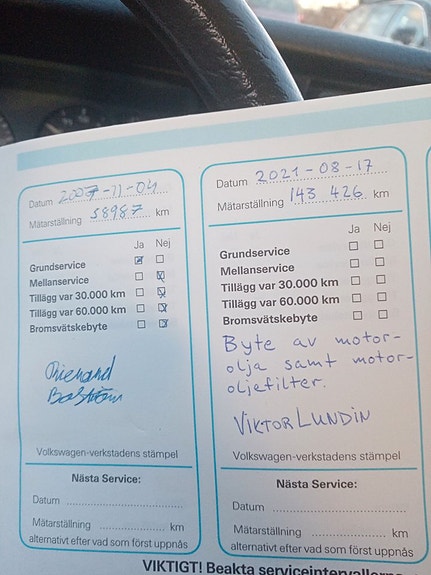 Datum 2007-11-04
Mätarställning 58987 km
Ja Nej
Grundservice
Mellanservice
Tillägg var 30.000 km
Tillägg var 60.000 km
Bromsvätskebyte
Richard
Boström
Volkswagen-verkstadens stämpel
Nästa Service:
Datum
Mätarställning km
alternativt efter vad som först uppnås
Datum 2021-08-17
Mätarställning 143 426 km
Ja Nej
Grundservice
Mellanservice
Tillägg var 30.000 km
Tillägg var 60.000 km
Bromsvätskebyte
Byte av motor-
olja samt motor-
oljefilter.
VIKTOR LUNDIN
Volkswagen-verkstadens stämpel
Nästa Service:
Datum
Mätarställning km
alternativt efter vad som först uppnås
VIKTIGT! Beakta serviceintervallerna